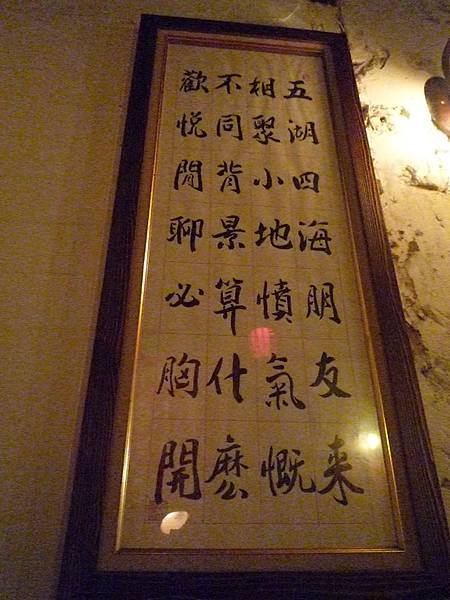 五湖四海朋友来
相聚小地憤氣慨
不同背景算什麽
歡悅閒聊必胸開